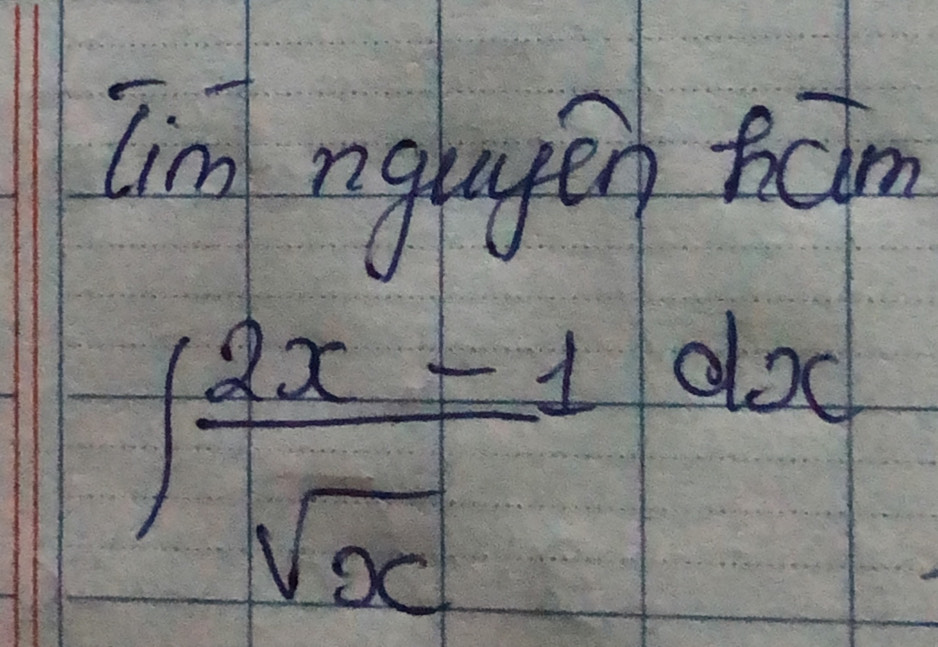 Tìm nguyên hàm
∫ (2x - 1)/√x dx